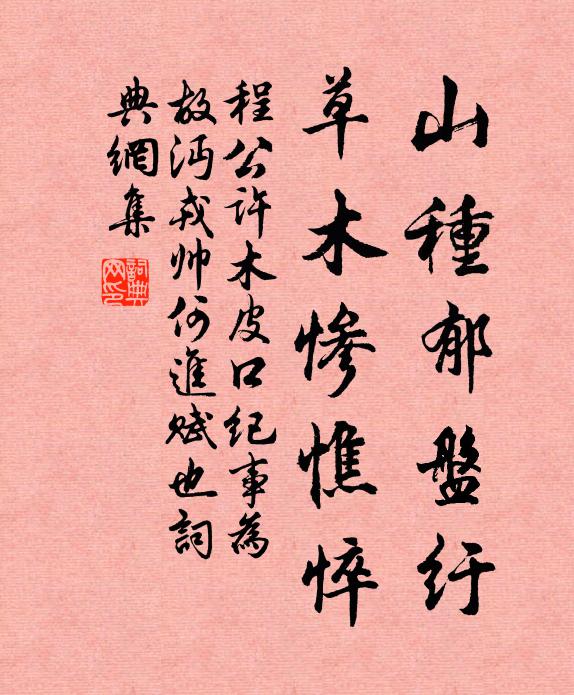 山種郁盤紆
草木慘憔悴
程公許木皮口纪事為
故沔戎帅何進賦也詞
典網集
詞典網印